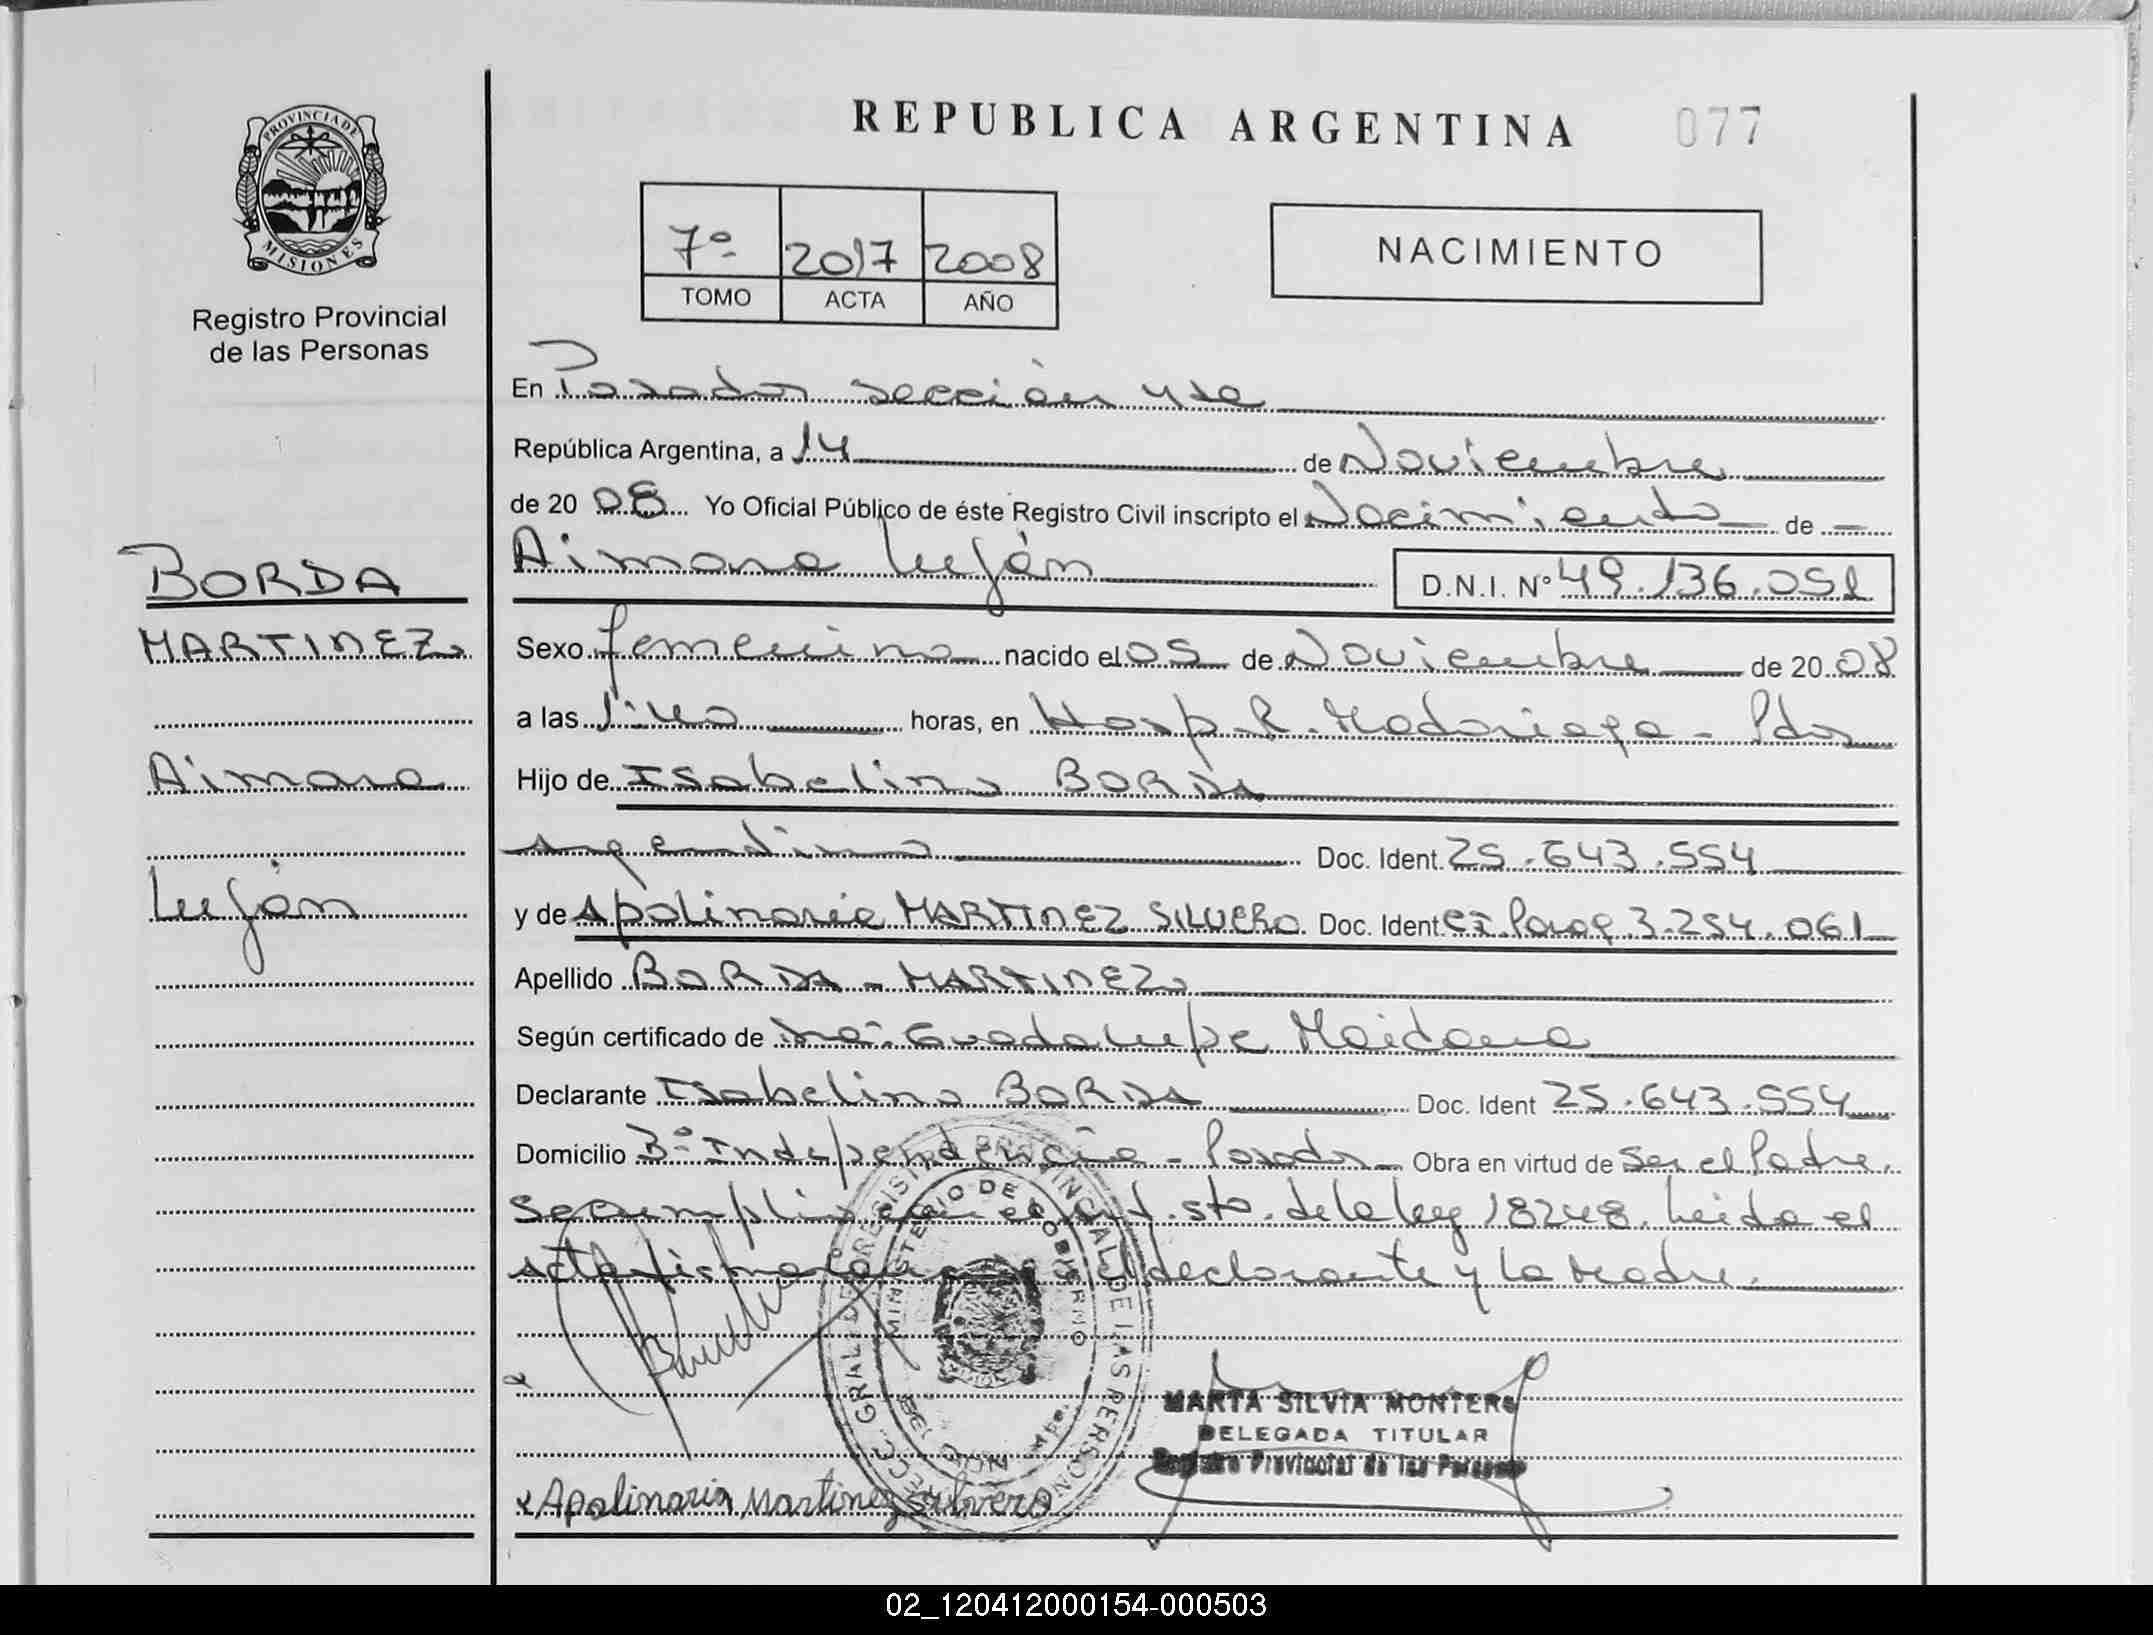 REPUBLICA ARGENTINA 077
PROVINCIA DE
MISIONES
Registro Provincial
de las Personas
7º 2017 2008
TOMO ACTA AÑO
NACIMIENTO
En Posadas sección 4ta
República Argentina, a 14 de Noviembre
de 20 08 Yo Oficial Público de éste Registro Civil inscripto el Nacimiento de
Aimara Luján D.N.I. Nº 49.136.051
BORDA
MARTINEZ
Aimara
Luján
Sexo femenino nacido el 05 de Noviembre de 20 08
a las horas, en Hosp. R. Madariaga - Pdas
Hijo de Isabelino BORDA
argentino Doc. Ident. 25.643.554
y de Apolinaria MARTINEZ SILVERO Doc. Ident CI. Parag 3.254.061
Apellido BORDA - MARTINEZ
Según certificado de Guadalupe Maidana
Declarante Isabelino BORDA Doc. Ident 25.643.554
Domicilio Bº Independencia - Posadas Obra en virtud de ser el Padre.
Se cumplió con el art. 5to. de la ley 18248. Leida el
acta firman el declarante y la Madre.
MINISTERIO DE GOBIERNO
MARTA SILVIA MONTERO
DELEGADA TITULAR
Registro Provincial de las Personas
x Apolinaria Martinez Silvero
02_120412000154-000503